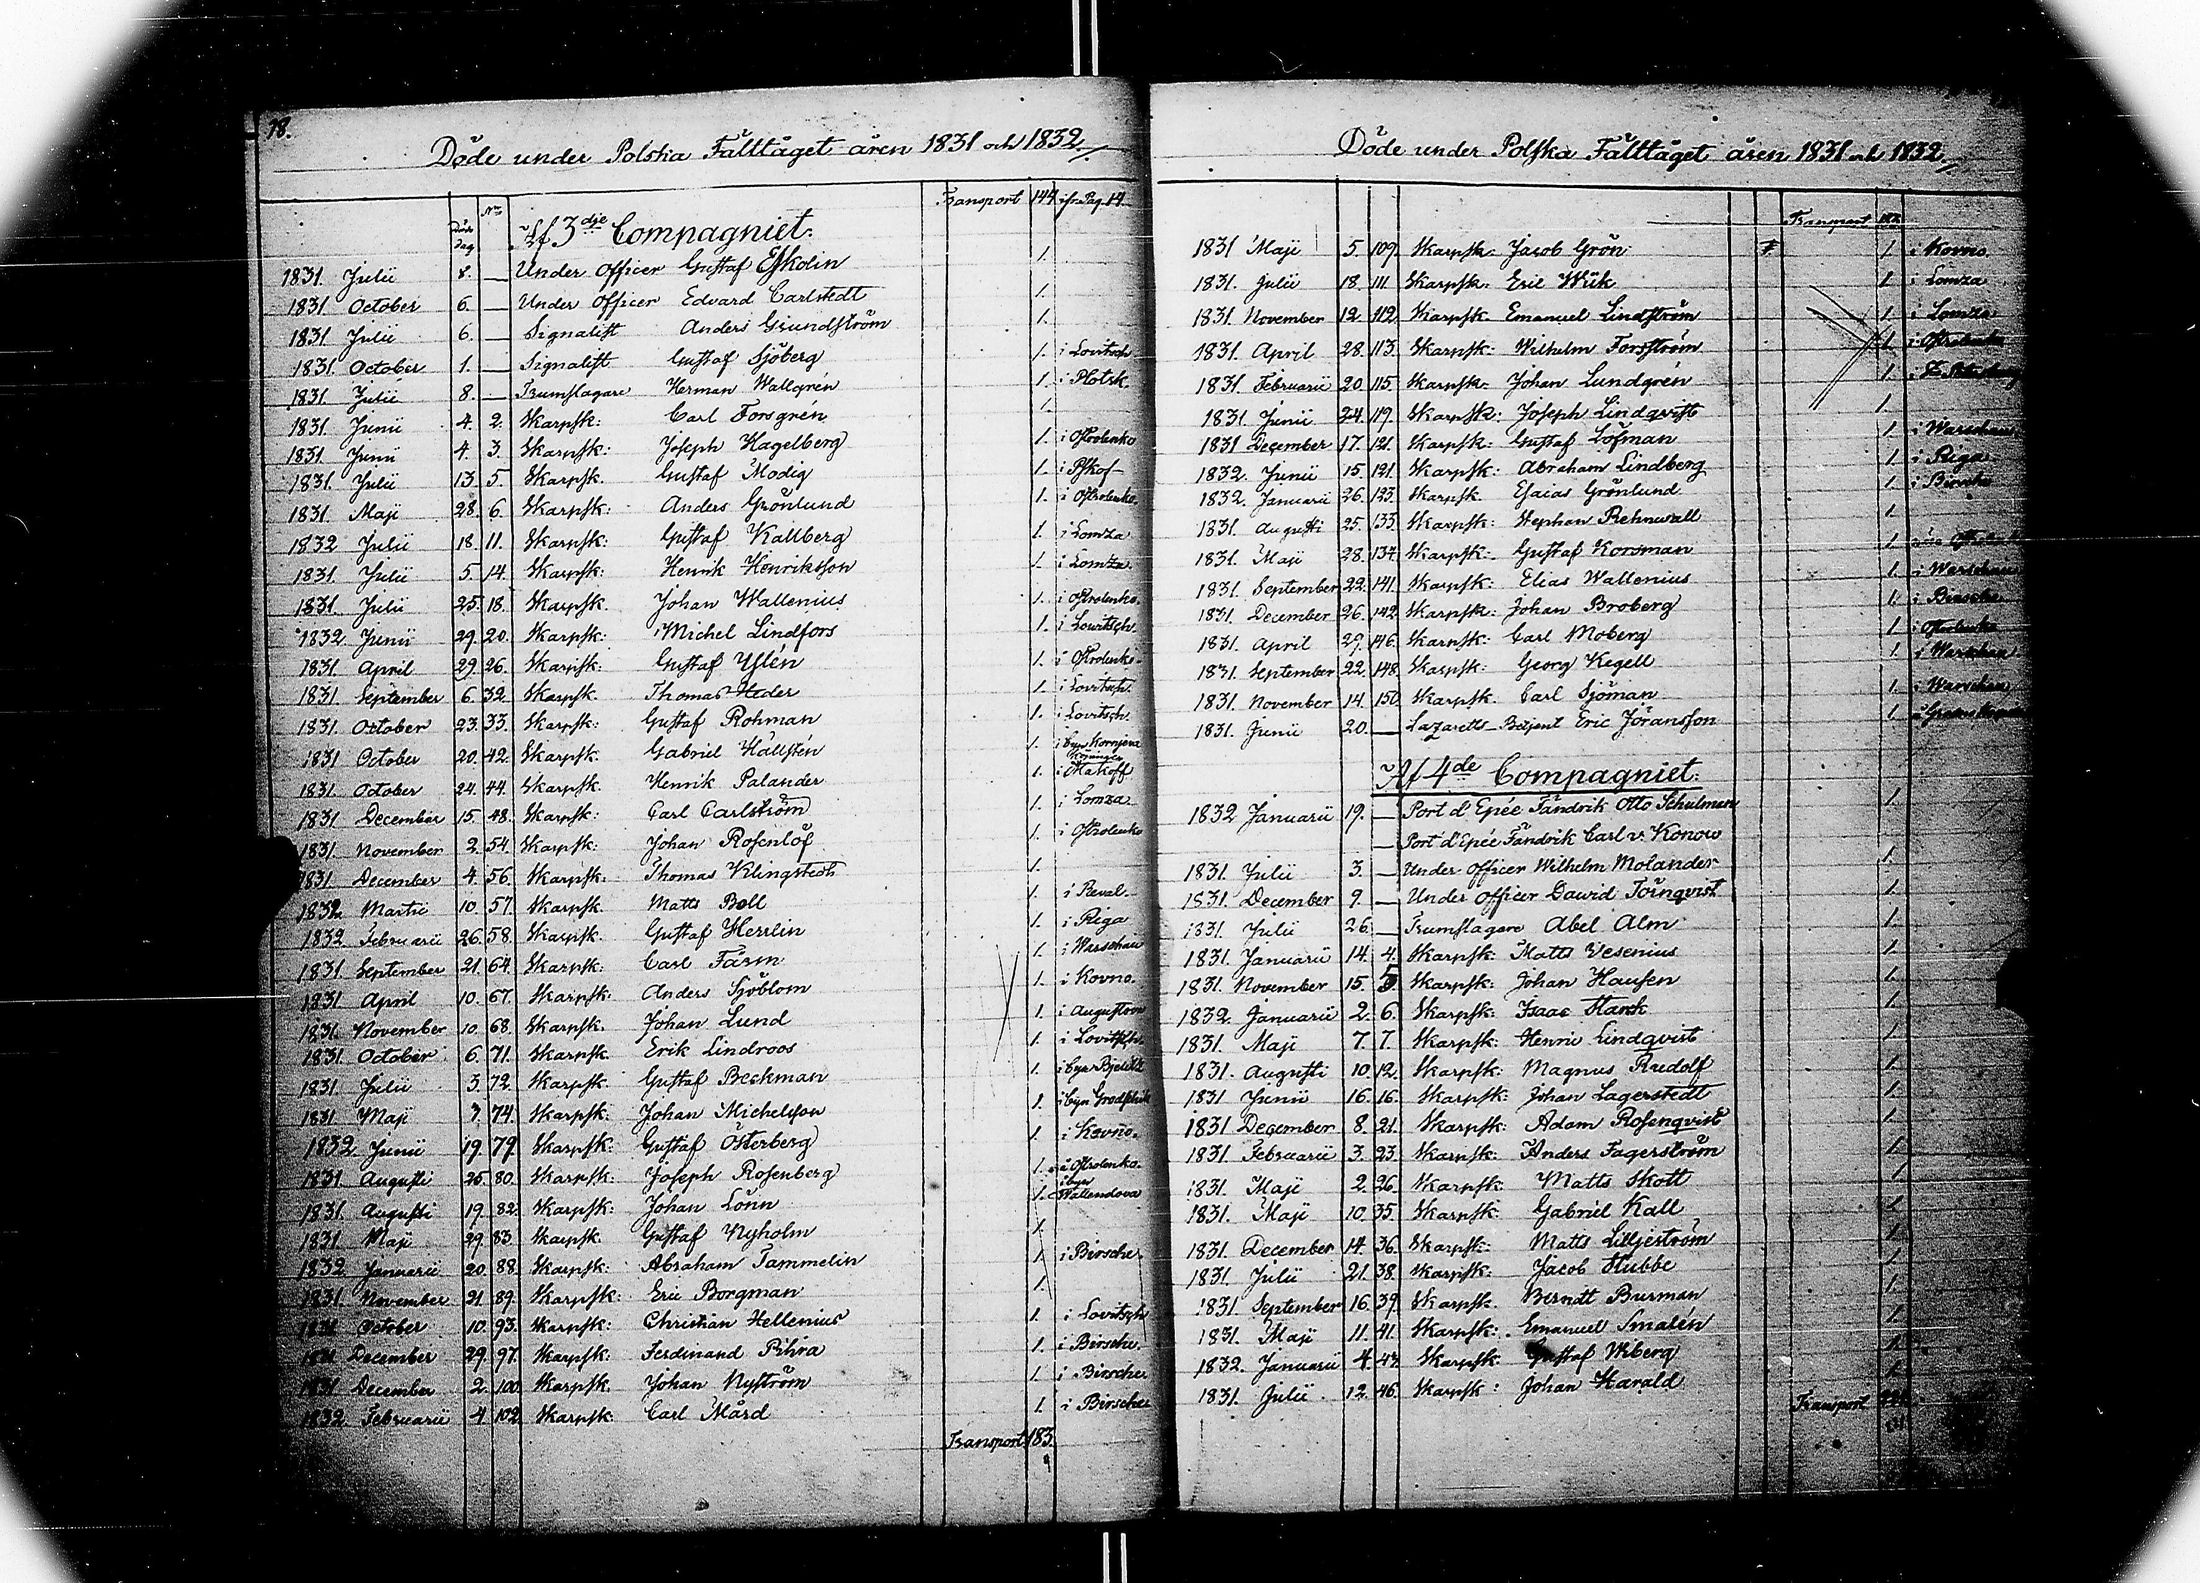 18.
Döde under Polska Fälttåget åren 1831 och 1832
Transport 144 ifr. Pag. 14
Döds dag No
Af 3dje Compagniet.
1831 Julii 8. — Under Officer Gustaf Eskolin 1.
1831 October 6. — Under Officer Edvard Carlstedt 1.
1831 Julii 6. — Signalist Anders Grundström 1.
1831. October 1. — Signalist Gustaf Sjöberg 1. i Lovitsch
1831 Julii 8. — Trumslagare Herman Wallgrén 1. i Plotsk
1831. Junii 4. 2. Skarpsk: Carl Forsgrén 1.
1831. Junii 4. 3. Skarpsk: Joseph Hagelberg 1. i Ostrolenko
1831. Julii 13. 5. Skarpsk. Gustaf Modig 1. i Pskof
1831. Maji 28. 6. Skarpsk: Anders Grönlund 1. i Ostrolenko
1832 Julii 18. 11. Skarpsk: Gustaf Kallberg 1. i Lomza
1831. Julii 5. 14. Skarpsk: Henrik Henriksson 1. i Lomza
1831. Julii 25. 18. Skarpsk. Johan Wallenius 1. i Ostrolenko.
1832 Junii 29. 20. Skarpsk: Michel Lindfors 1. i Lovitsch.
1831. April 29. 26. Skarpsk: Gustaf Yslén 1. i Ostrolenko
1831. September 6. 32. Skarpsk. Thomas Heder 1. i Lovitsch.
1831. October 23. 33. Skarpsk: Gustaf Rohman 1. i Lovitsch
1831 October 20. 42. Skarpsk. Gabriel Hällstén 1. i byn Kornjena
1831. October 24. 44. Skarpsk. Henrik Palander 1. i Makoff
1831 December 15. 48. Skarpsk: Carl Carlström 1. i Lomza
1831 November 2. 54. Skarpsk: Johan Rosenlöf 1. i Ostrolenko
1831 December 4. 56. Skarpsk: Thomas Klingstedt 1.
1832 Martii 10. 57. Skarpsk. Matts Boll 1. i Reval
1832 Februarii 26. 58. Skarpsk. Gustaf Herrlin 1. i Riga
1831 September 21. 64. Skarpsk: Carl Färm 1. i Warschau
1831 April 10. 67. Skarpsk: Anders Sjöblom 1. i Kovno.
1831. November 10. 68. Skarpsk. Johan Lund 1. i Augustow
1831. October 6. 71. Skarpsk. Erik Lindroos 1. i Lovitsch
1831 Julii 3. 72. Skarpsk. Gustaf Beckman 1. i byn
1831 Maji 7. 74. Skarpsk: Johan Michelsson 1. i byn
1832 Junii 19. 79. Skarpsk: Gustaf Österberg 1. i Kovno.
1831. Augusti 25. 80. Skarpsk: Joseph Rosenberg 1. i Ostrolenko.
1831. Augusti 19. 82. Skarpsk: Johan Lönn 1. i byn Wallendova
1831 Maji 29. 83. Skarpsk. Gustaf Nyholm 1.
1832 Januarii 20. 88. Skarpsk: Abraham Tammelin 1. i Birsche
1831 November 21. 89. Skarpsk: Eric Borgman 1.
1831 October 10. 93. Skarpsk: Christian Hellenius 1. i Lovitsch
1831 December 29. 97. Skarpsk: Ferdinand Pihra 1. i Birsche
1831 December 2. 100. Skarpsk. Johan Nyström 1. i Birsche
1832 Februarii 4. 102. Skarpsk: Carl Mård 1. i Birsche
Transport 183.
Döde under Polska Fälttåget åren 1831 och 1832
Transport 183.
1831 Maji 5. 109. Skarpsk. Jacob Grön 1. i Kovno.
1831. Julii 18. 111. Skarpsk. Eric Wiik 1. i Lomza
1831 November 12. 112. Skarpsk. Emanuel Lindström 1. i Lomza
1831. April 28. 113. Skarpsk: Wilhelm Forsström 1. i Ostrolenko
1831 Februarii 20. 115. Skarpsk. Johan Lundgrén 1. i
1831. Junii 24. 119. Skarpsk: Joseph Lindqvist 1.
1831 December 17. 121. Skarpsk: Gustaf Löfman 1. i Warschau
1832. Junii 15. 121. Skarpsk: Abraham Lindberg 1. i Riga
1832. Januarii 26. 123. Skarpsk. Esaias Grönlund 1. i Birsche
1831. Augusti 25. 133. Skarpsk: Stephan Rehnwall 1.
1831. Maji 28. 134. Skarpsk: Gustaf Korsman 1.
1831. September 22. 141. Skarpsk: Elias Wallenius 1. i Warschau
1831. December 26. 142. Skarpsk: Johan Broberg 1. i Birsche
1831. April 29. 146. Skarpsk: Carl Moberg 1. i Ostrolenko
1831. September 22. 148. Skarpsk: Georg Kegell 1. i Warschau
1831. November 14. 150. Skarpsk. Carl Sjöman 1. i Warschau
1831. Junii 20. — Lazaretts-Betjent Eric Jöransson 1.
Af 4de Compagniet.
1832 Januarii 19. — Port d'Epée Fändrik Otto Schulman 1.
— Port d'Epée Fändrik Carl v. Konow
1831. Julii 3. — Under Officer Wilhelm Molander 1.
1831. December 9. — Under Officer Dawid Törnqvist 1.
1831. Julii 26. — Trumslagare Abel Alm 1.
1831. Januarii 14. 4. Skarpsk: Matts Vesenius 1.
1831. November 15. 5. Skarpsk: Johan Hausen 1.
1832. Januarii 2. 6. Skarpsk: Isaac Stark 1.
1831. Maji 7. 7. Skarpsk: Henric Lindqvist 1.
1831. Augusti 10. 12. Skarpsk: Magnus Rudolf 1.
1831 Junii 16. 16. Skarpsk: Johan Lagerstedt 1.
1831 December 8. 21. Skarpsk: Adam Rosenqvist 1.
1831. Februarii 3. 23. Skarpsk: Anders Fagerström 1.
1831. Maji 2. 26. Skarpsk: Matts Skott 1.
1831. Maji 10. 35. Skarpsk: Gabriel Kall 1.
1831. December 14. 36. Skarpsk: Matts Lilljeström 1.
1831. Julii 21. 38. Skarpsk: Jacob Stubbe 1.
1831. September 16. 39. Skarpsk. Berndt Burman 1.
1831. Maji 11. 41. Skarpsk: Emanuel Smalén 1.
1832. Januarii 4. 43. Skarpsk: Gustaf Wiberg 1.
1831. Julii 12. 46. Skarpsk: Johan Harald 1.
Transport